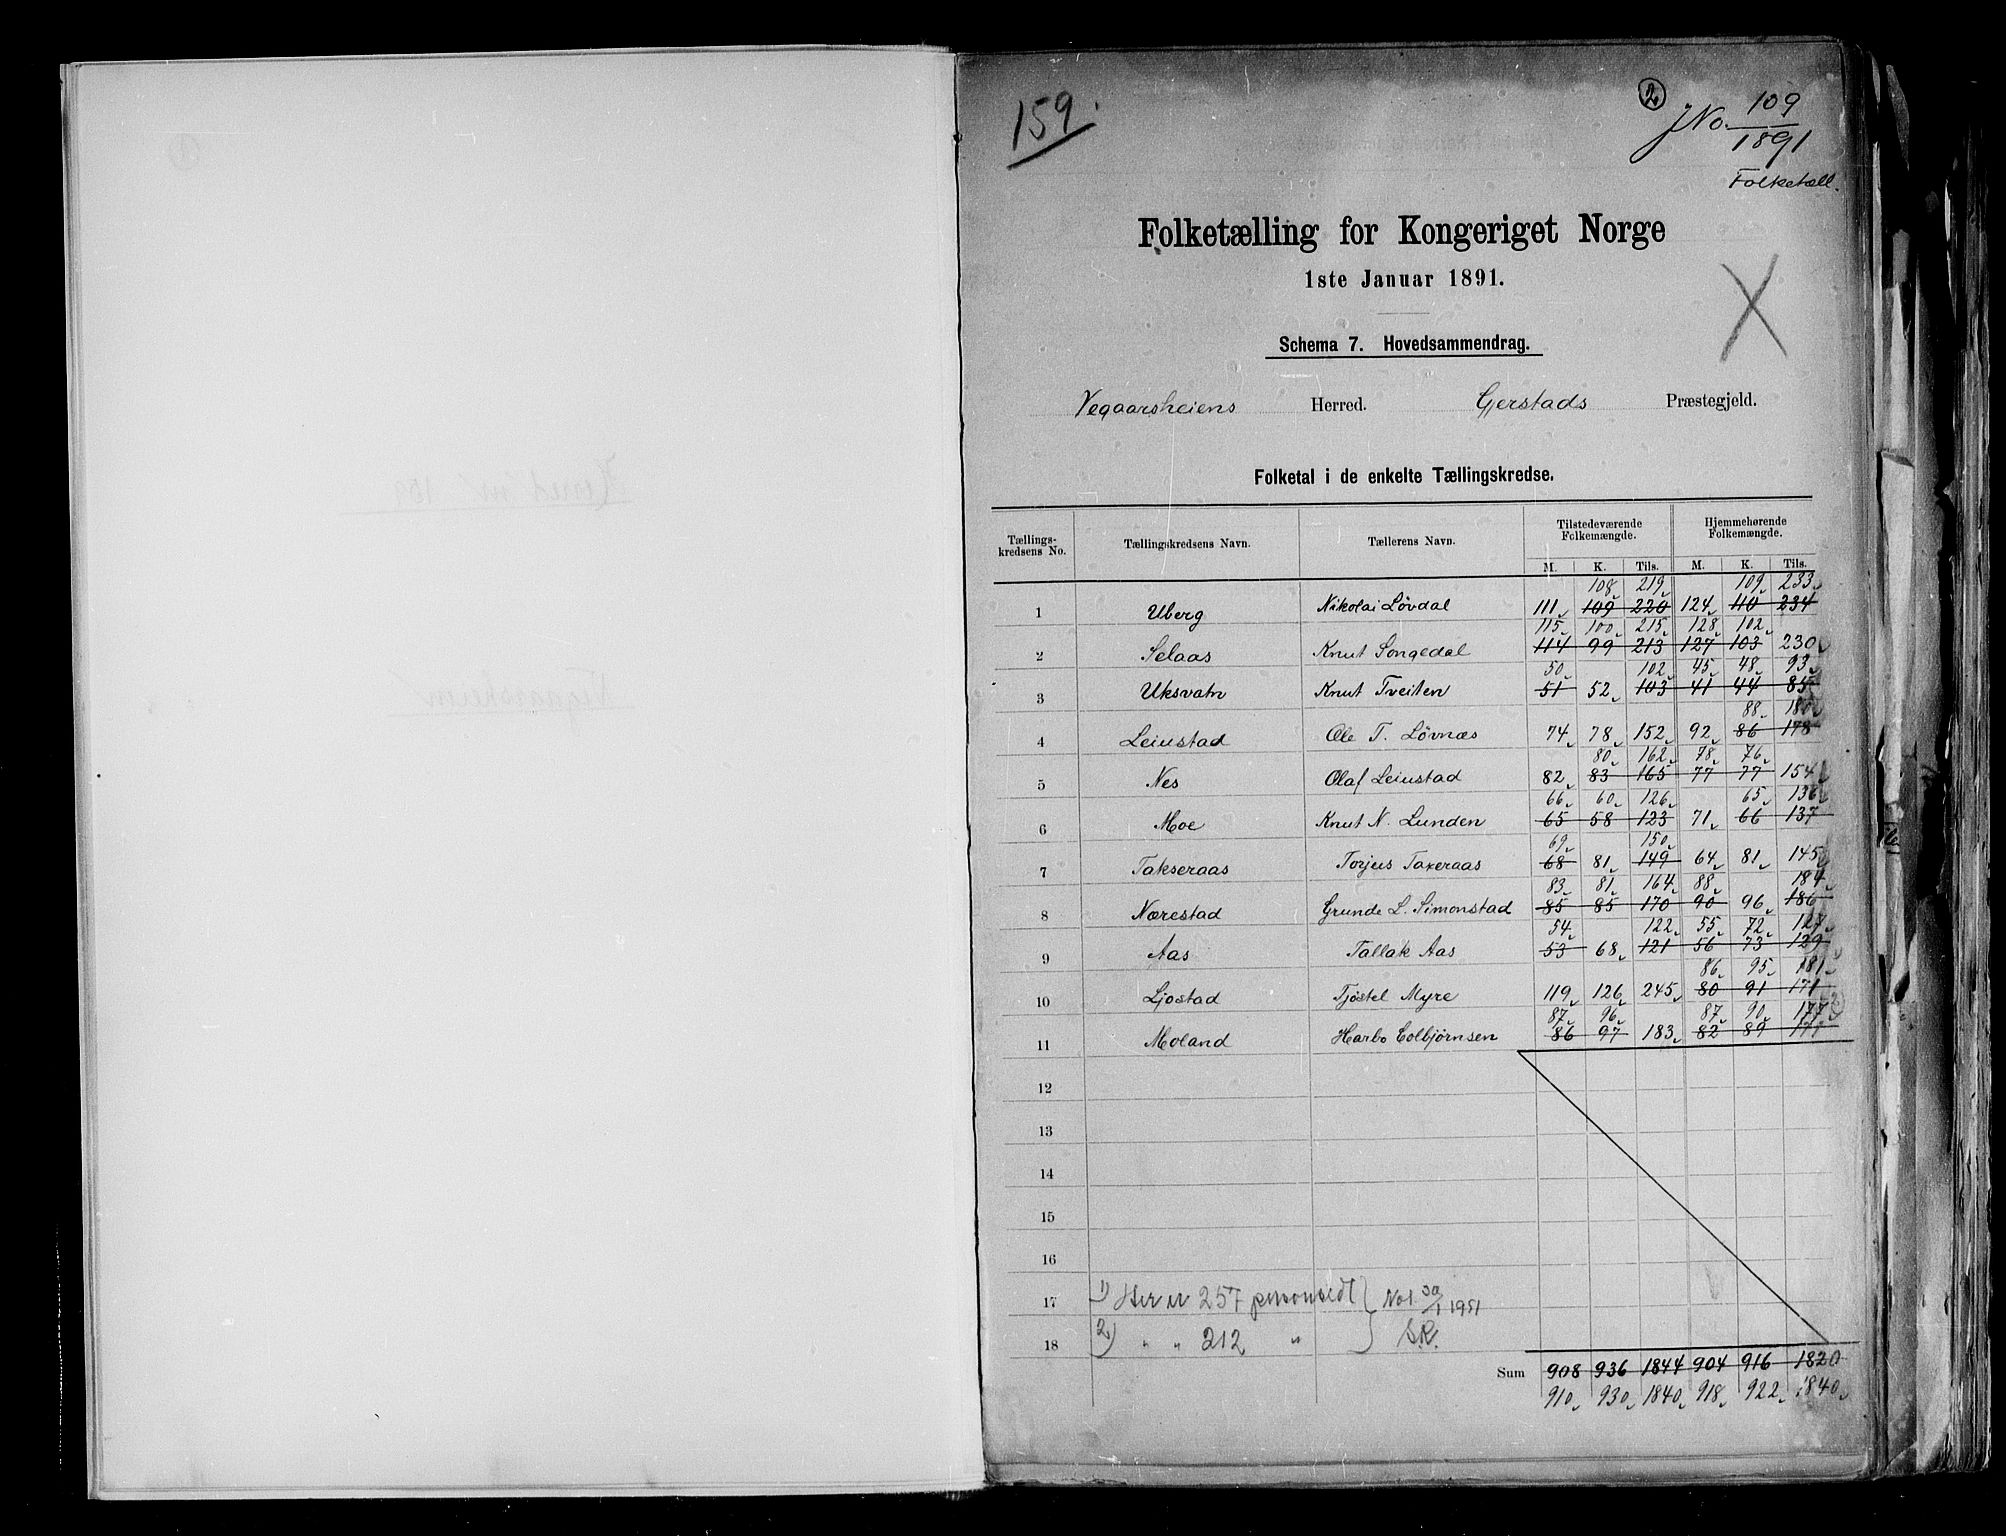 159.
2
JNo. 109
1891
Folketæll.
Folketælling for Kongeriget Norge
1ste Januar 1891.
Schema 7. Hovedsammendrag.
Vegaarsheiens Herred. Gjerstads Præstegjeld.
Folketal i de enkelte Tællingskredse.
Tilstedeværende Hjemmehørende
Tællings- Tællingskredsens Navn. Tællerens Navn. Folkemængde. Folkemængde.
kredsens No.
M. K. Tils. M. K. Tils.
108 219 109 233
1 Uberg Nikolai Lövdal 111 109 220 124 110 234
115 100 215 128 102
2 Selaas Knut Songedal 114 99 213 127 103 230
50 102 45 48 93
3 Uksvatn Knut Tveiten 51 52 103 41 44 85
88 180
4 Leiustad Ole T. Lövnæs 74 78 152 92 86 178
80 162 78 76
5 Nes Olaf Leiustad 82 83 165 77 77 154
66 60 126 65 136
6 Moe Knut N. Lunden 65 58 123 71 66 137
69 150
7 Takseraas Torjus Taxeraas 68 81 149 64 81 145
83 81 164 88 184
8 Nærestad Grunde L. Simonstad 85 85 170 90 96 186
54 122 55 72 127
9 Aas Tallak Aas 53 68 121 56 73 129
86 95 181
10 Ljostad Tjöstel Myre 119 126 245 80 91 171
87 96 87 90 177 2)
11 Moland Harbo Colbjörnsen 86 97 183 82 89 171
12
13
14
15
16
17 1) Her er 257 personsedl Not. 30/1 1951
18 2) " " 212 " S.R.
Sum 908 936 1844 904 916 1820
910 930 1840 918 922 1840